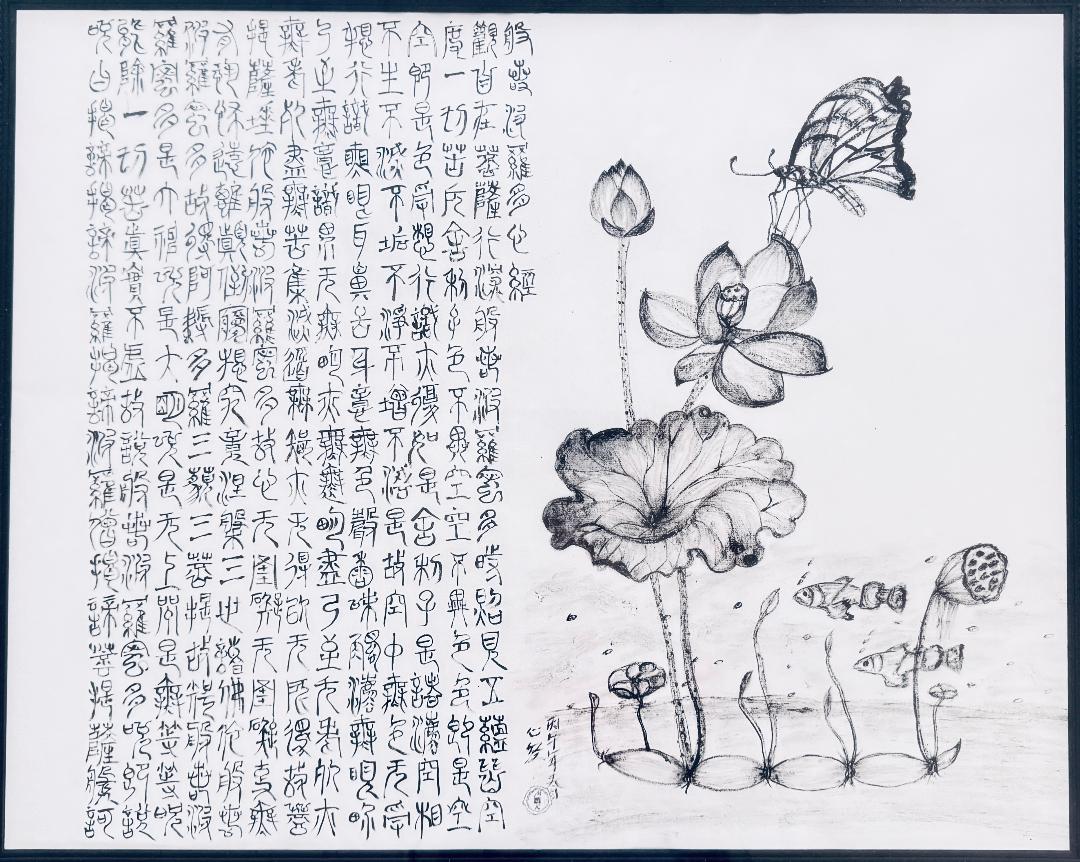 般若波羅多心經
觀自在菩薩行深般若波羅蜜多時照見五蘊皆空
度一切苦厄舍利子色不異空空不異色色即是空
空即是色受想行識亦復如是舍利子是諸法空相
不生不滅不垢不淨不增不減是故空中無色无受
想行識無眼耳鼻舌身意無色聲香味觸法無眼界
乃至無意識界无無明亦無無明盡乃至无老死亦
無老死盡無苦集滅道無智亦无得以无所得故菩
提薩埵依般若波羅蜜多故心无罣礙无罣礙故無
有恐怖遠離顛倒夢想究竟涅槃三世諸佛依般若
波羅蜜多故得阿耨多羅三藐三菩提故知般若波
羅蜜多是大神咒是大明咒是无上咒是無等等咒
能除一切苦真實不虛故說般若波羅蜜多咒即說
咒曰揭諦揭諦波羅揭諦波羅僧揭諦菩提薩婆訶
丙午年